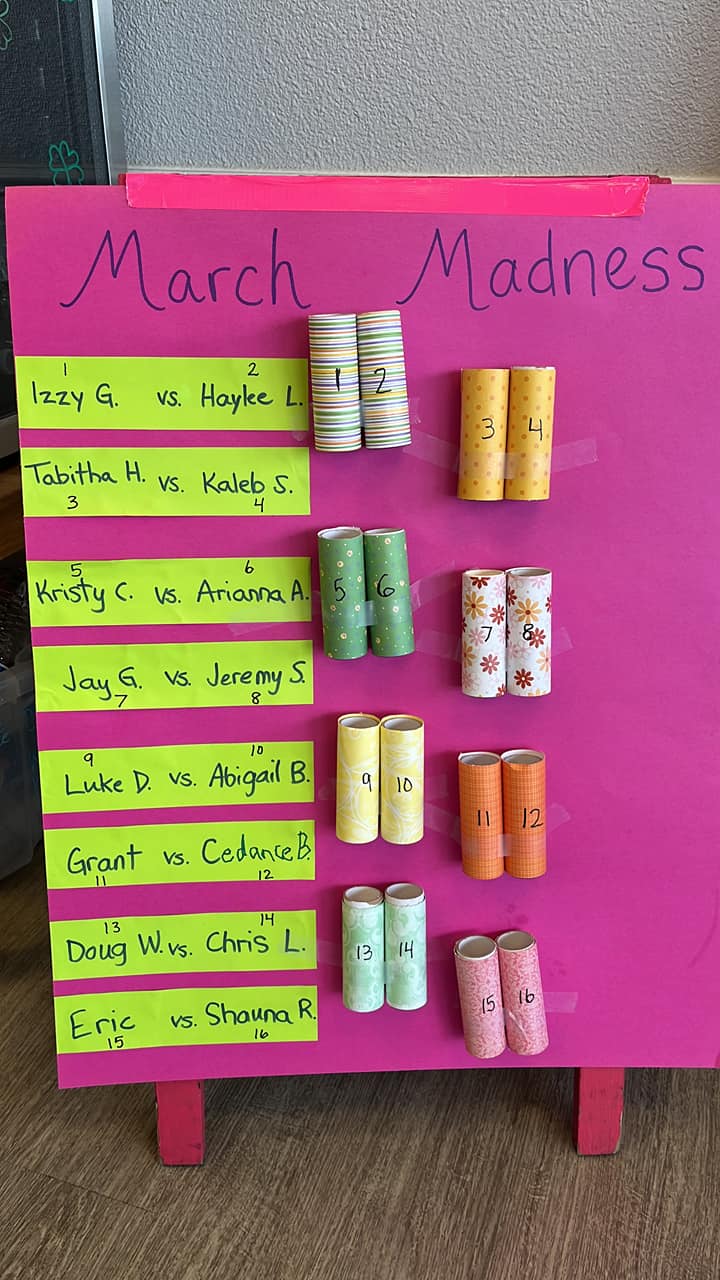 March Madness
1 2
Izzy G. vs. Haylee L.
1 2
3 4
Tabitha H. vs. Kaleb S.
3 4
5 6
Kristy C. vs. Arianna A.
5 6
7 8
Jay G. vs. Jeremy S.
7 8
9 10
Luke D. vs. Abigail B.
9 10
11 12
Grant vs. Cedance B.
11 12
13 14
Doug W. vs. Chris L.
13 14
15 16
Eric vs. Shauna R.
15 16